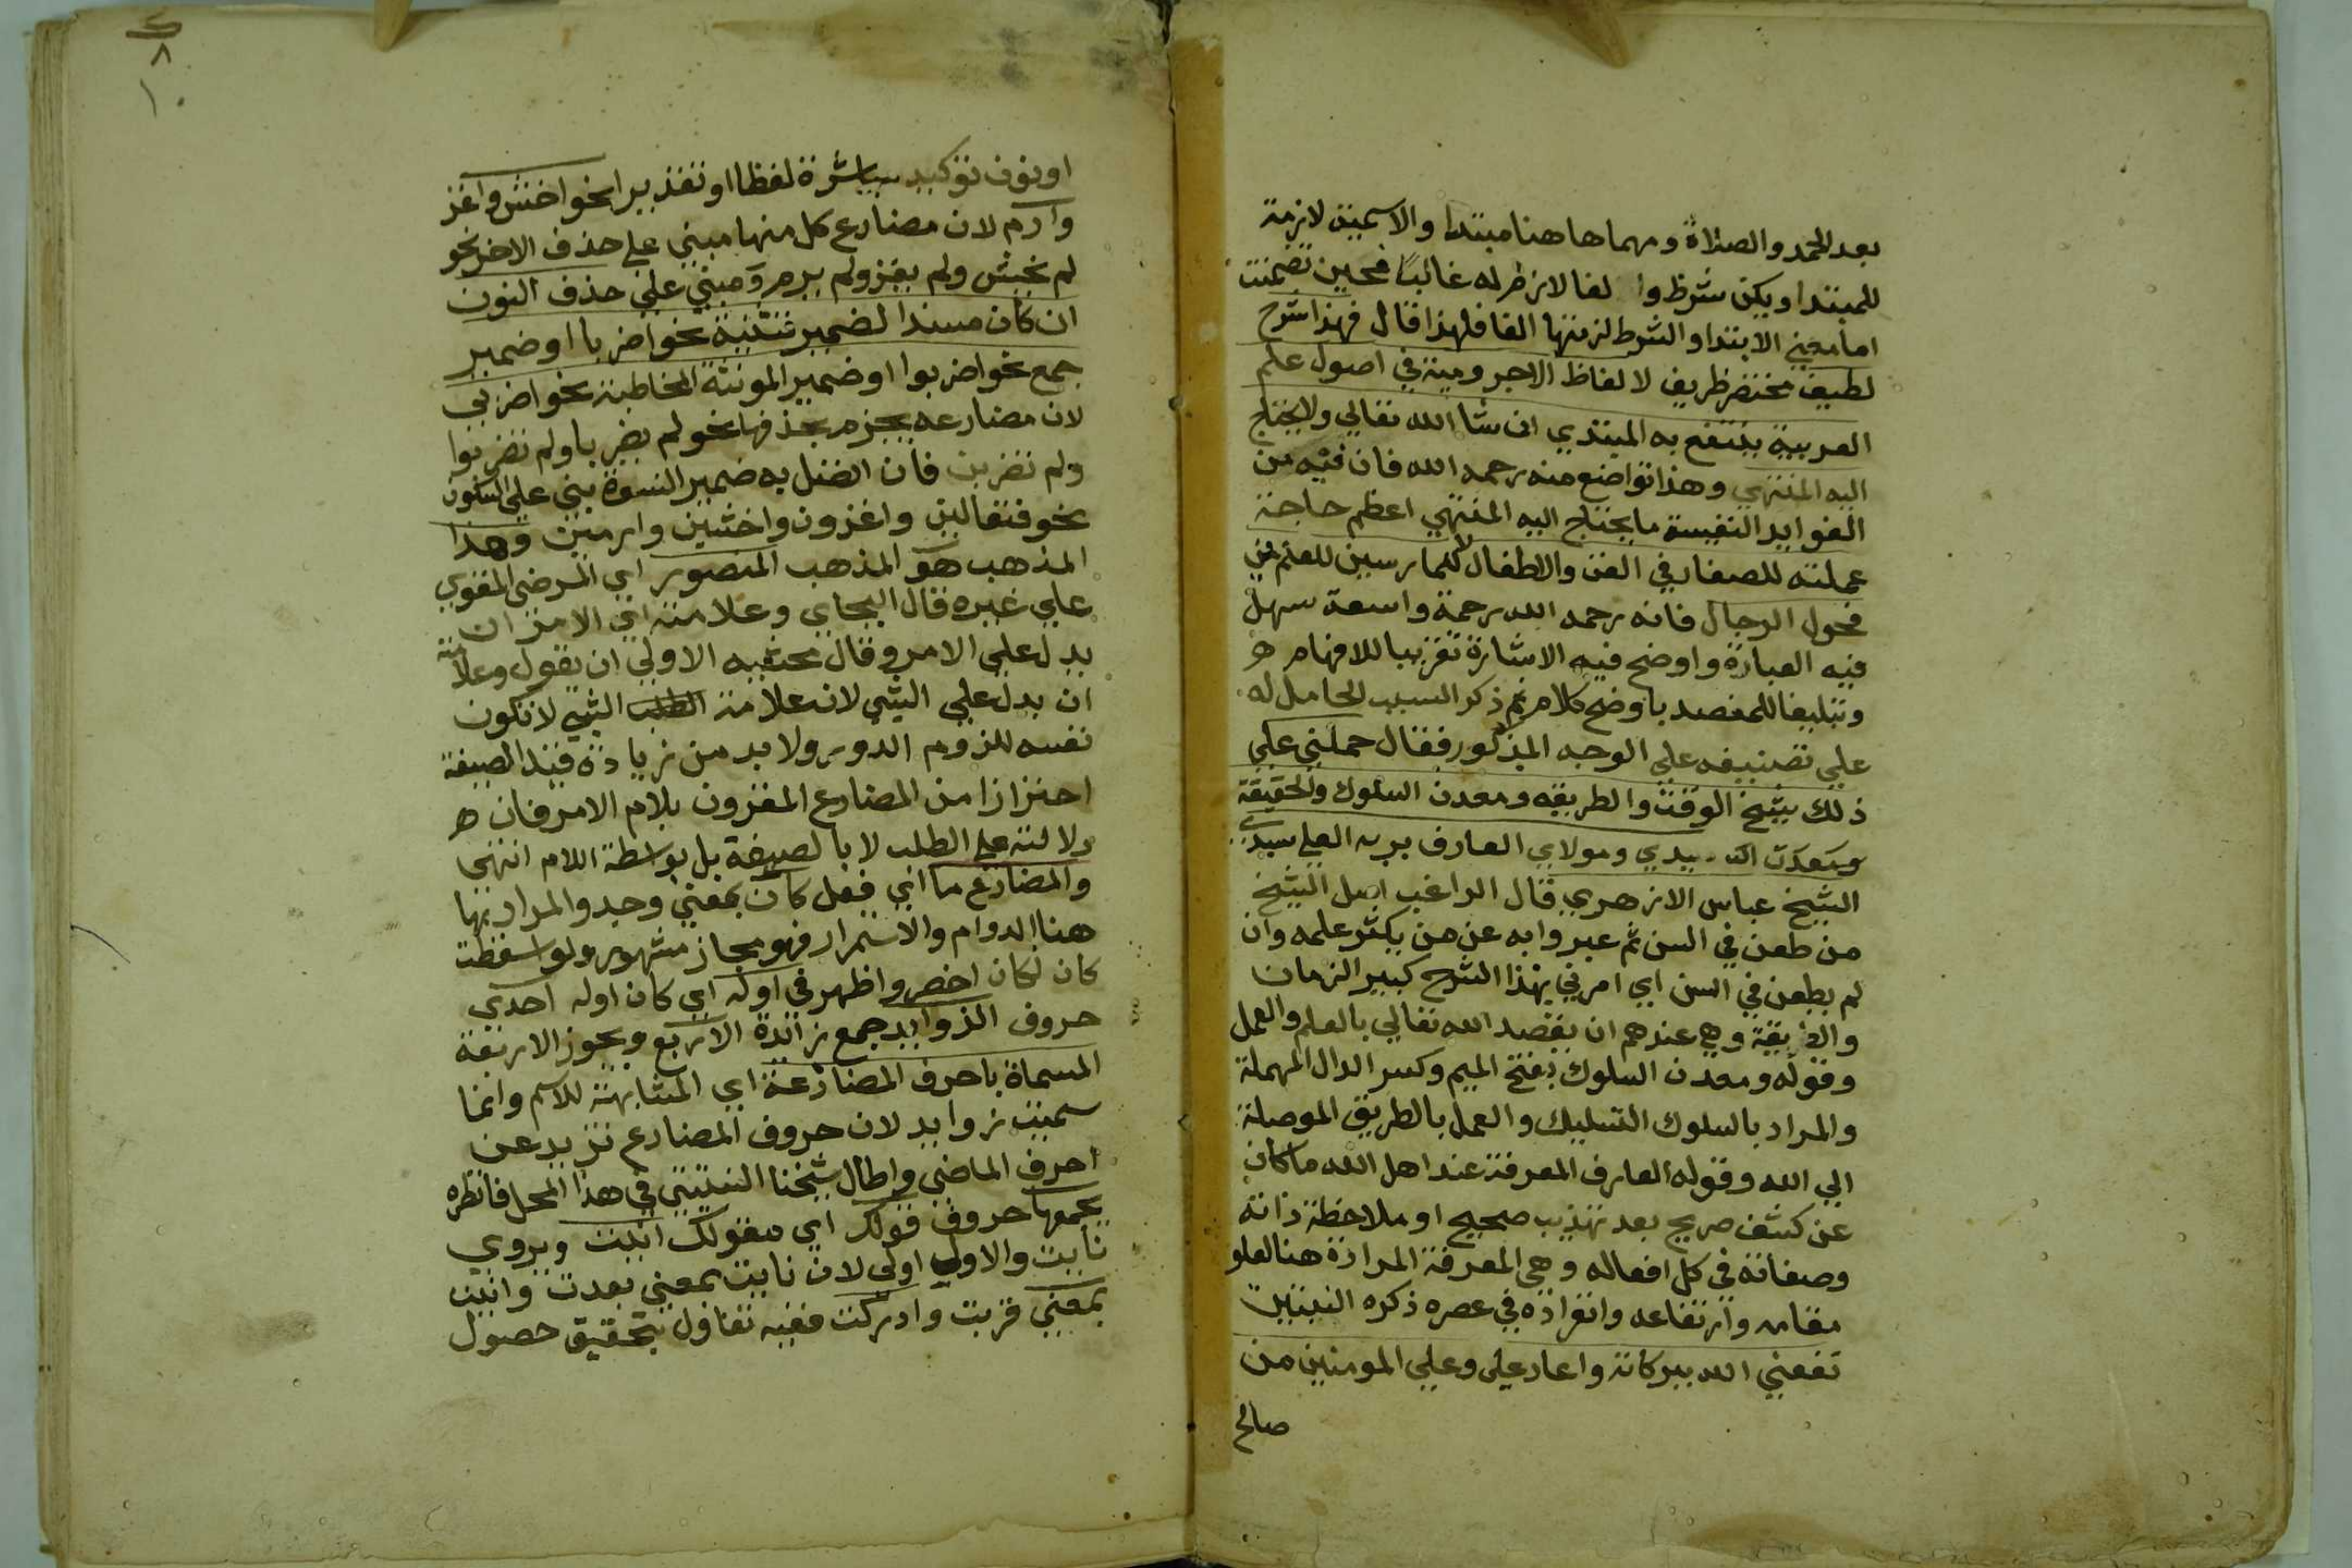 بعد الحمد والصلاة ومهما هاهنا مبتدا والاسمية لازمة
للمبتدا ويكن شرط والفا لازم له غالبا فحين تضمنت
اما معني الابتدا والشرط لزمتها الفا فلهذا قال فهذا شرح
لطيف مختصر ظريف لالفاظ الاجرومية في اصول علم
العربية ينتفع به المبتدي ان شا الله تعالي ولا يحتاج
اليه المنتهي وهذا تواضع منه رحمه الله فان فيه من
الفوايد النفيسة ما يحتاج اليه المنتهي اعظم حاجة
عملته للصغار في الفن والاطفال لا للممارسين للعلم من
فحول الرجال فانه رحمه الله رحمة واسعة سهل
فيه العبارة واوضح فيه الاشارة تقريبا للافهام
وتبليغا للمقصد باوضح كلام ثم ذكر السبب الحامل له
علي تصنيفه علي الوجه المذكور فقال حملني علي
ذلك شيخ الوقت والطريقه ومعدن السلوك والحقيقة
سيدي ومولاي العارف بربه العلي سيدي
الشيخ عباس الازهري قال الراغب اصل الشيخ
من طعن في السن ثم عبروا به عن من يكثر علمه وان
لم يطعن في السن اي امرني بهذا الشرح كبير الزمان
والطريقة وهي عندهم ان يقصد الله تعالي بالعلم والعمل
وقوله ومعدن السلوك بفتح الميم وكسر الدال المهملة
والمراد بالسلوك التسليك والعمل بالطريق الموصلة
الي الله وقوله العارف المعرفة عند اهل الله ما كان
عن كشف صريح بعد تهذيب صحيح او ملاحظة ذاته
وصفاته في كل افعاله وهي المعرفة المرادة هنا لعلو
مقامه وارتفاعه وانفراده في عصره ذكره النبتيتي
نفعني الله ببركاته واعاد علي وعلي المومنين من
صالح
٨
١٠
او نون توكيد مباشرة لفظا او تقديرا نحو اخش واغز
وارم لان مضارع كل منها مبني علي حذف الاخر نحو
لم يخش ولم يغز ولم يرم ومبني علي حذف النون
ان كان مسندا لضمير تثنية نحو اضربا او ضمير
جمع نحو اضربوا او ضمير المونثة المخاطبة نحو اضربي
لان مضارعه يجزم بحذفها نحو لم يضربا ولم تضربوا
ولم تضربن فان اتصل به ضمير النسوة بني علي السكون
نحو فتعالين واغزون واخشين وارمين وهذا
المذهب هو المذهب المنصور اي المرضي المقوي
علي غيره قال البجاي وعلامته اي الامر ان
يدل علي الامر وقال محشيه الاولي ان يقول وعلامته
ان يدل علي الشي لان علامة الطلب الشي لا تكون
نفسه للزوم الدور ولا بد من زيادة قيد الصيغة
احترازا من المضارع المقرون بلام الامر فان
دلالته علي الطلب لا بالصيغة بل بواسطة اللام انتهي
والمضارع ما اي فعل كان بمعني وجد والمراد بها
هنا الدوام والاستمرار فهو مجاز مشهور ولو اسقطت
كان لكان اخصر واظهر في اوله اي كان اوله احدي
حروف الزوايد جمع زائدة الاربع ويجوز الاربعة
المسماة باحرف المضارعة اي المشابهة للاسم وانما
سميت زوايد لان حروف المضارع تزيد عن
احرف الماضي واطال شيخنا النبتيتي في هذا المحل فانظره
يجمعها حروف قولك اي مقولك انيت ويروي
نايت والاول اولي لان نايت بمعني بعدت وانيت
بمعني قربت وادركت ففيه تفاول بتحقيق حصول